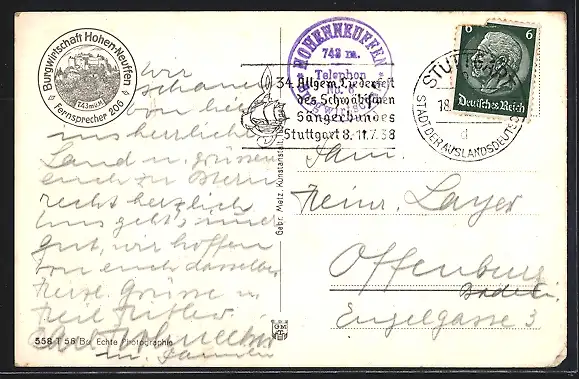 Burgwirtschaft Hohen-Neuffen
743 m ü M
Fernsprecher 206
HOHENNEUFFEN
743 m.
Telephon
No. 6
34. Allgem. Liederfest
des Schwäbischen
Sängerbundes
Stuttgart 8.-11.7.38
STUTTGART
18.
STADT DER AUSLANDSDEUTSCHEN
d
6 6
Deutsches Reich
Wir
schauen
von hier
ins herrliche
Land u. grüssen
euch zu Ostern
recht herzlich
Uns geht's immer
gut, wir hoffen
von euch dasselbe
Herzl. Grüsse u.
Heil Hitler
u. Familie
Fam.
Heinr. Layer
Offenburg
Baden
Engelgasse 3
Gebr. Metz, Kunstanstalt,
GM
558 T 56 Bu Echte Photographie